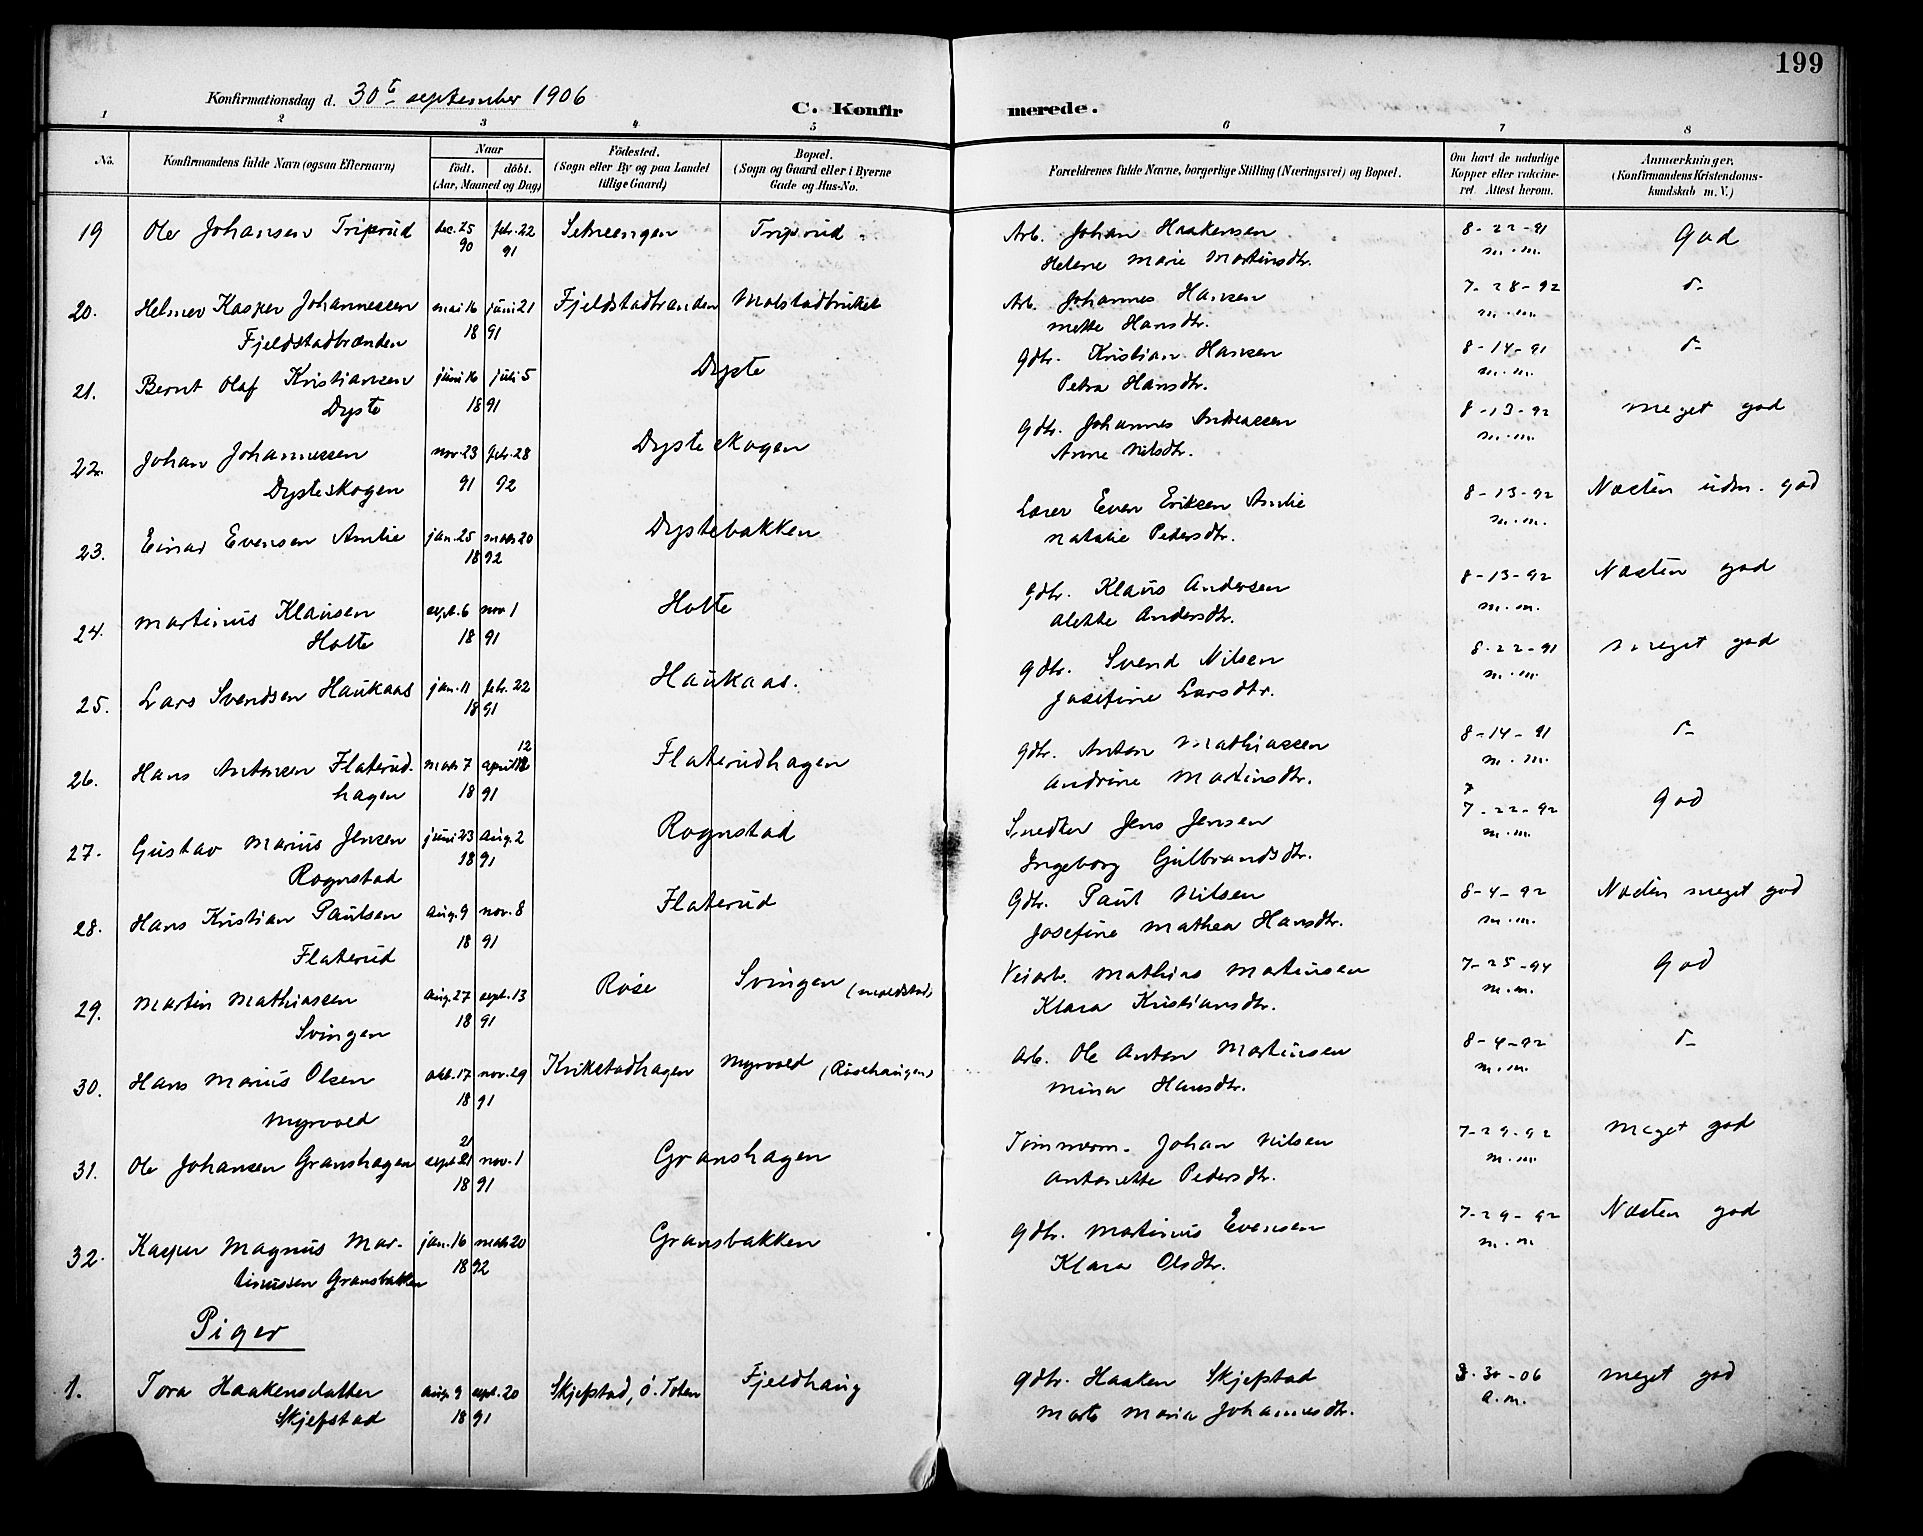 199
Konfirmationsdag d. 30t september 1906
C. Konfirmerede.
1 2 3 4 5 6 7 8
No. Konfirmandens fulde Navn (ogsaa Efternavn) Naar födt. döbt. (Aar, Maaned og Dag) Födested. (Sogn eller By og paa Landet tillige Gaard) Bopæl. (Sogn og Gaard eller i Byerne Gade og Hus-No.) Forældrenes fulde Navne, borgerlige Stilling (Næringsvei) og Bopæl. Om havt de naturlige Kopper eller vaccineret. Attest herom. Anmærkninger. (Konfirmandens Kristendomskundskab m. V.)
19 Ole Johansen Triprud dec. 25 90 febr. 22 91 Triprud Arb. Johan Haakensen 8-22-91 God
Helene Marie Martinsdtr. m.m.
20. Helmer Kasper Johannessen mai 16 juni 21 Fjeldstadbranden Molstadbruket Arb. Johannes Hansen 7-28-92 d-
Fjeldstadbrænden 18 91 Mette Hansdtr. m.m.
21. Bernt Olaf Kristiansen juni 16 juli 5 Dyste Gdbr. Kristian Hansen 8-14-91 d-
Dyste 18 91 Petra Hansdtr. m.m.
22. Johan Johannessen nov. 23 febr. 28 Dysteskogen Gdbr. Johannes Andreassen 8-13-92 meget god
Dysteskogen 91 92 Anne Nilsdtr. m.m.
23. Einar Evensen Amlie jan. 25 mars 20 Dystebakken Lærer Even Eriksen Amlie 8-13-92 Næsten udm. god
18 92 Natalie Pedersdtr. m.m.
24. Martinus Klausen sept. 6 nov. 1 Hotte Gdbr. Klaus Andersen 8-13-92 Næsten god
Hotte 18 91 Alette Andersdtr. m.m.
25. Lars Svendsen Haukaas jan. 11 febr. 22 Haukaas. Gdbr. Svend Nilsen 8-22-91 meget god
18 91 Josefine Larsdtr. m.m.
26. Hans Antonsen Flaterud- mars 7 april 12 12 Flaterudhagen Gdbr. Anton Mathiassen 8-14-91 d-
hagen 18 91 Andrine Martinsdtr. m.m.
27. Gustav Marius Jensen juni 23 aug. 2 Rognstad Snedker Jens Jensen 7 7-22-92 God
Rognstad 18 91 Ingeborg Gulbrandsdtr. m.m.
28. Hans Kristian Paulsen aug. 9 nov. 8 Flaterud Gdbr. Paul Nilsen 8-4-92 Næsten meget god
Flaterud 18 91 Josefine Mathea Hansdtr. m.m.
29. Martin Mathiassen aug. 27 sept. 13 Röise Svingen Veiarb. Mathias Matinsen 7-25-94 God
Svingen 18 91 Klara Kristiansdtr. m.m.
30. Hans Marius Olsen okt. 17 nov. 29 Krikstadhagen Myrvold (Rösehaugen) Arb. Ole Anton Martinsen 8-4-92 d-
Myrvold 18 91 Mina Hansdtr. m.m.
31. Ole Johansen Granshagen sept. 21 21 nov. 1 Granshagen Tömmerm. Johan Nilsen 7-29-92 meget god
18 91 Antonette Pedersdtr. m.m.
32. Kasper Magnus Mar- jan. 16 mars 20 Gransbakken Gdbr. Martinus Evensen 7-29-92 Næsten god
tinussen Gransbakken 18 92 Klara Olsdtr. m.m.
Piger
1. Tora Haakensdatter aug. 9 sept. 20 Skjefstad, ö. Toten Fjeldhaug Gdbr. Haaken Skjefstad 3-30-06 meget god
Skjefstad 18 91 Marte Maria Johannesdtr. a.m.